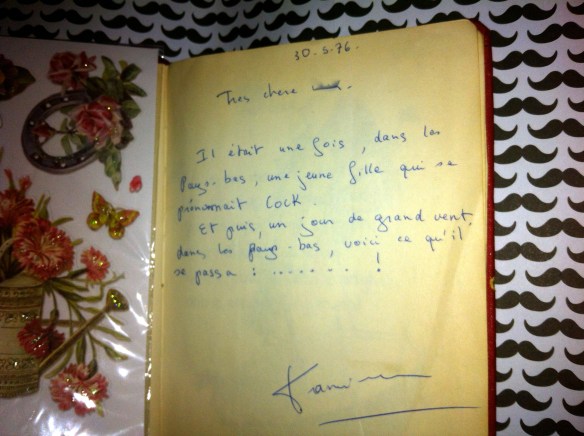 30-5-76.
Tres chere
Il était une fois, dans les
Pays-bas, une jeune fille qui se
prénommait Cock.
Et puis, un jour de grand vent,
dans les pays-bas, voici ce qu'il
se passa : ....... !